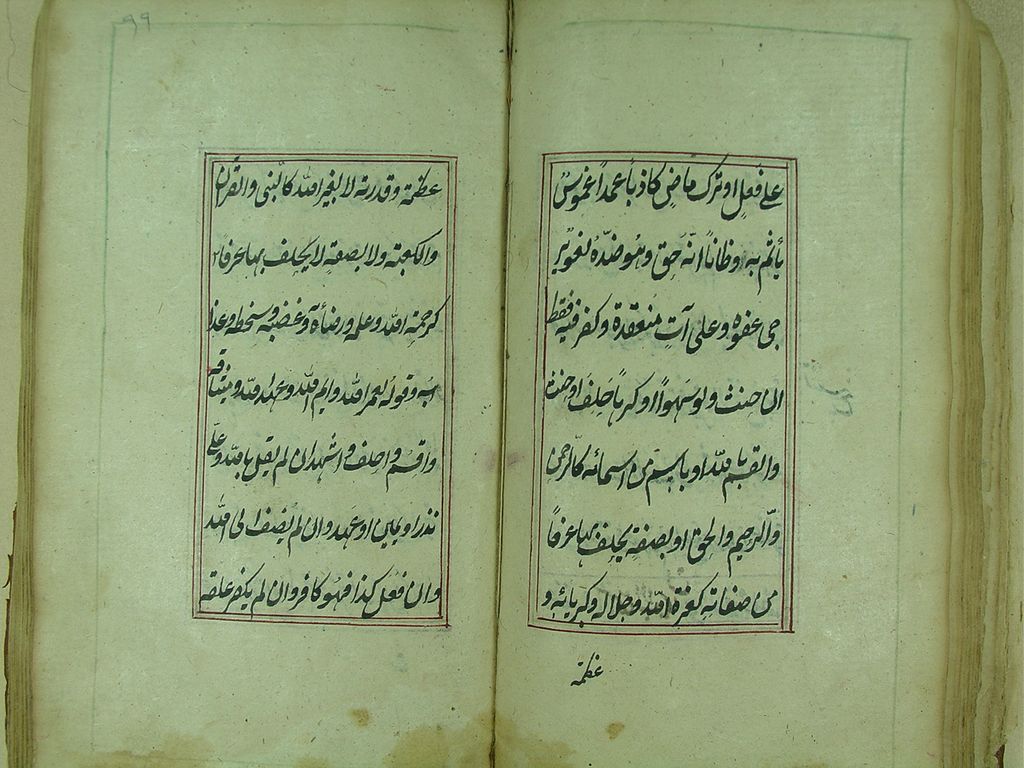 على فعل او ترك ماضٍ كاذباً عمداً غموسٌ
يأثم به وظاناً انّه حق وهو ضدّه لغو ير
جى عفوه وعلى آتٍ منعقدة وكفر فيه فقط
ان حنث ولو سهواً او كرهاً حلف او حنث
والقسم بالله او باسم من اسمائه كالرحمن
والرحيم والحق او بصفة يحلف بها عرفاً
من صفاته كعزة الله وجلاله وكبريائه و
عظمة
٩٩
عظمة وقدرته لا بغير الله كالنبى والقرآن
والكعبة ولا بصفة لا يحلف بها عرفا
كرحمته الله وعلمه ورضائه وغضبه وسخطه وعذا
به وقوله لعمر الله وايم الله وعهد الله وميثاقه
واقسم واحلف واشهد وان لم يقل بالله وعلىّ
نذر او يمين او عهد وان لم يضف الى الله
وان فعل كذا فهو كافر وان لم يكفر علقه